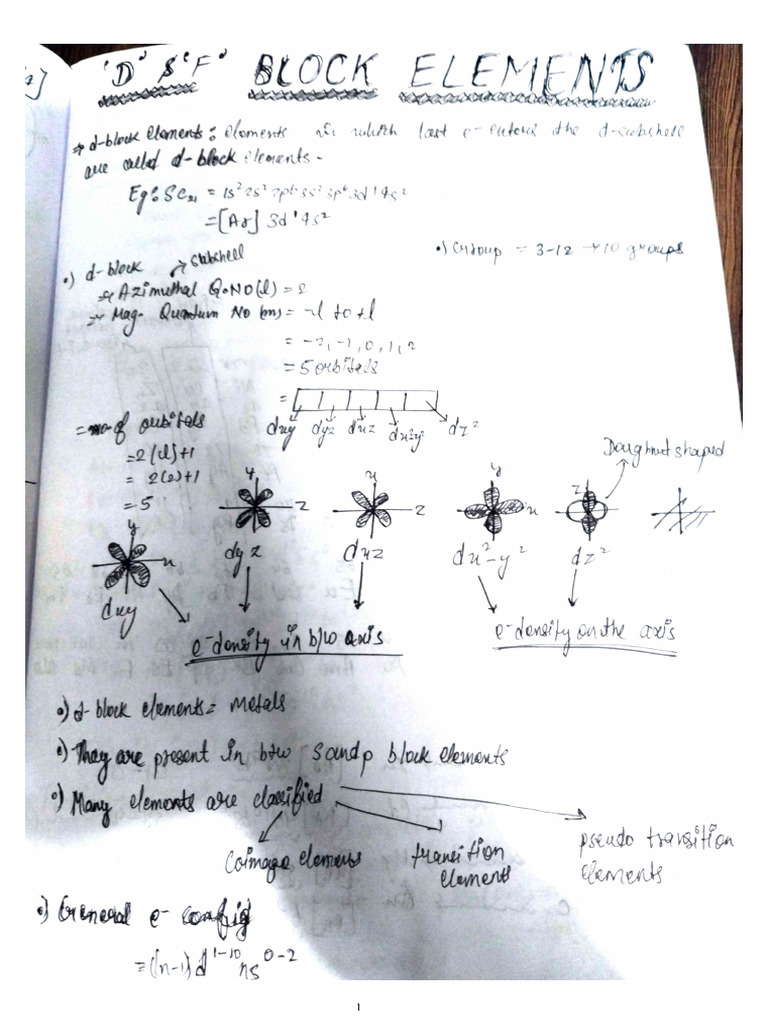 'D' & 'F' BLOCK ELEMENTS
⇒ d-block elements: elements in which last e- enters the d-subshell
are called d-block elements -
Eg: Sc21 = 1s² 2s² 2p⁶ 3s² 3p⁶ 3d¹ 4s²
= [Ar] 3d¹ 4s²
•) Group = 3-12 → 10 groups
•) d-block → subshell
→ Azimuthal Q.NO (l) = 2
→ Mag. Quantum No (m) = -l to +l
= -2, -1, 0, 1, 2
= 5 orbitals
=
dxy dyz dxz dx²-y² dz²
= no of orbitals
= 2(l)+1
= 2(2)+1
= 5
Doughnut shaped
y x
dxy
y z
dyz
x z
dxz
y x
dx²-y²
z
dz²
e- density in b/w axis
e- density on the axis
•) d-block elements = metals
•) They are present in btw s and p block elements
•) Many elements are classified
Coimage elements
transition elements
pseudo transition elements
•) General e- config
= (n-1)d¹⁻¹⁰ ns⁰⁻²
1